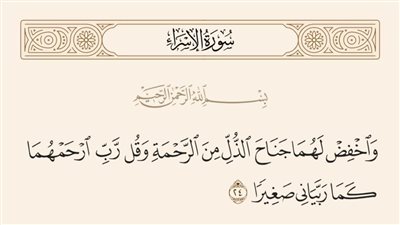 سُورَةُ الإِسْرَاءِ
بِسْمِ اللَّهِ الرَّحْمَٰنِ الرَّحِيمِ
وَٱخْفِضْ لَهُمَا جَنَاحَ ٱلذُّلِّ مِنَ ٱلرَّحْمَةِ وَقُل رَّبِّ ٱرْحَمْهُمَا
كَمَا رَبَّيَانِى صَغِيرًا ٢٤